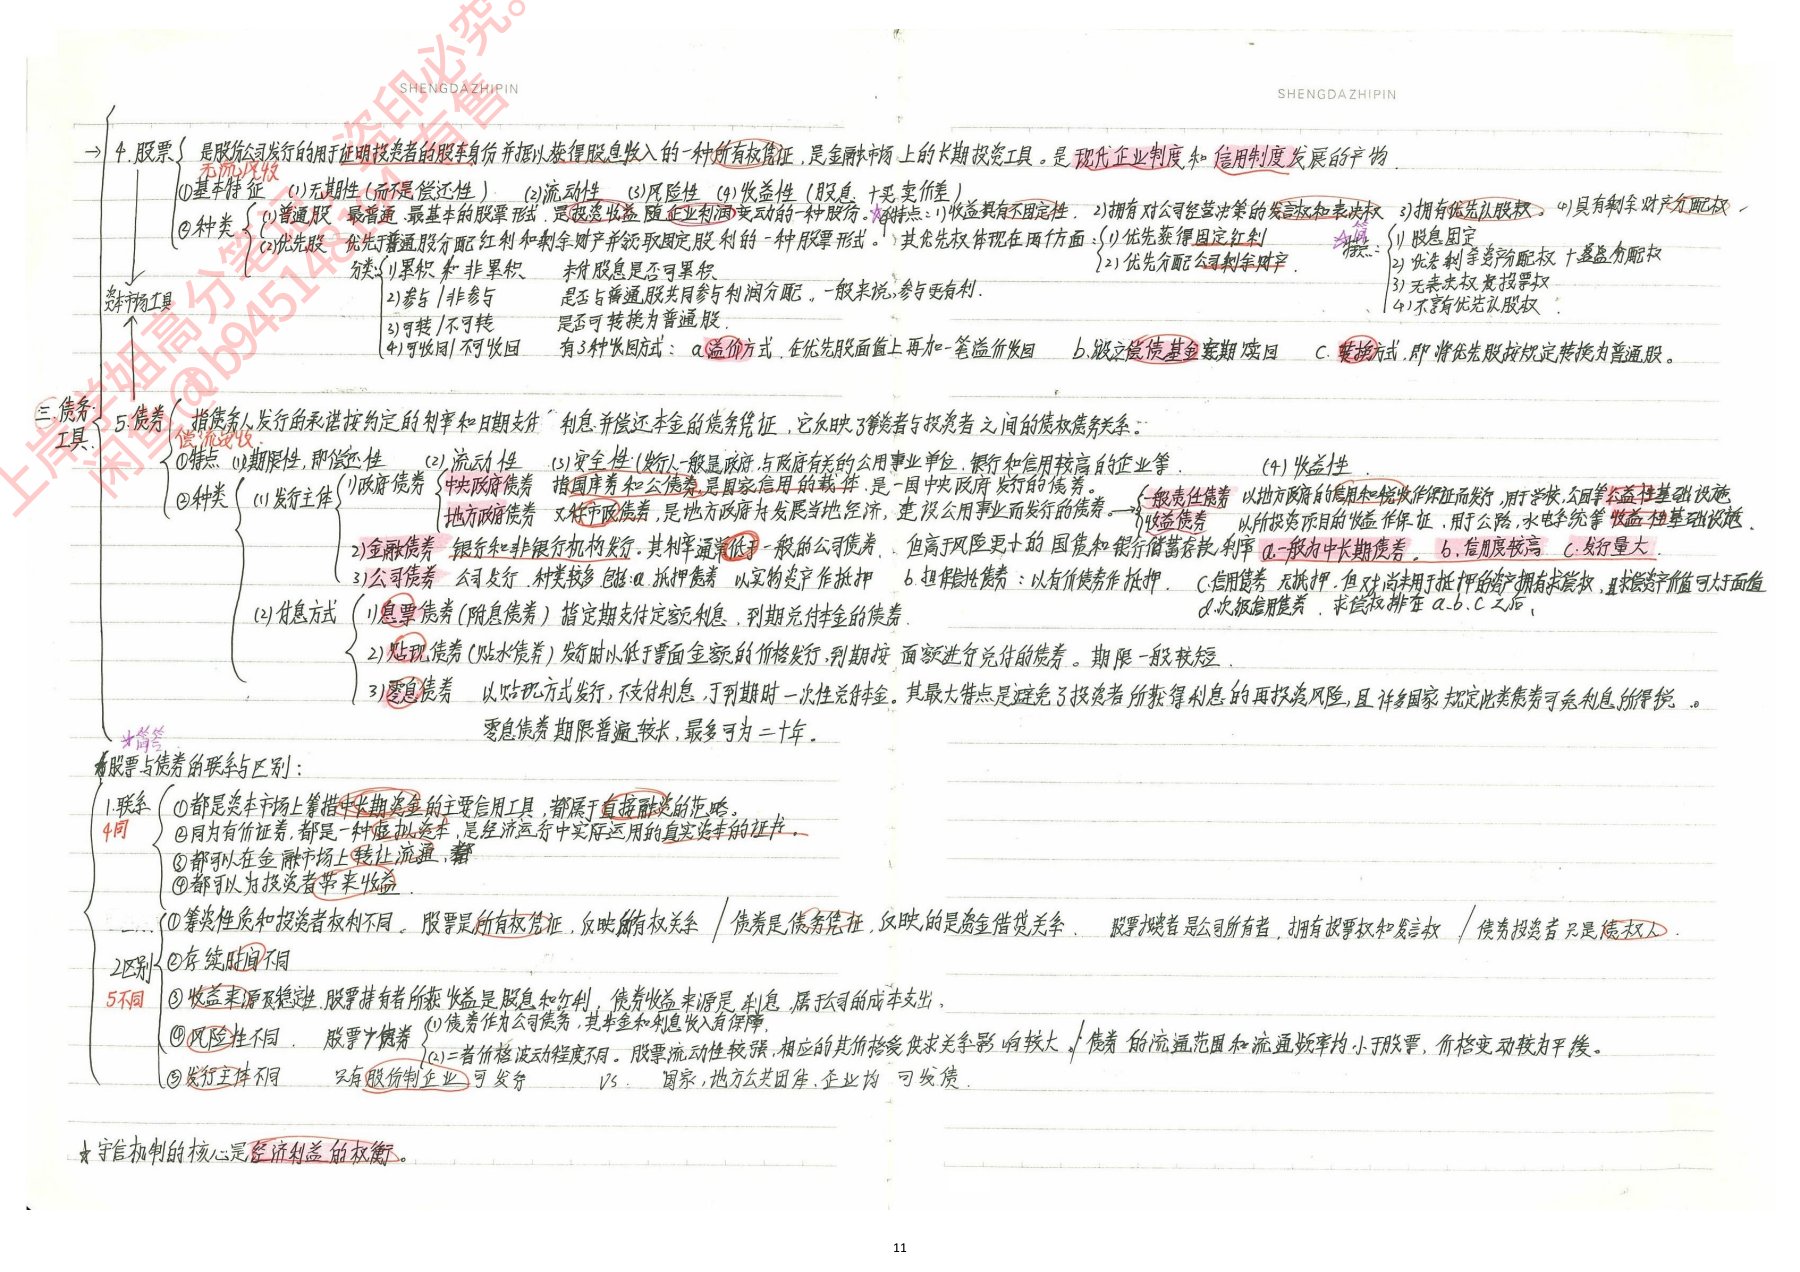 SHENGDAZHIPIN
SHENGDAZHIPIN
上岸学姐高分笔记，盗印必究。
闲鱼@b94514812有售
→ 4.股票 是股份公司发行的用于证明投资者的股东身份并据以获得股息收入的一种所有权凭证，是金融市场上的长期投资工具。是现代企业制度和信用制度发展的产物.
无流风收
①基本特征 (1)无期性(而不是偿还性) (2)流动性 (3)风险性 (4)收益性(股息.十买卖价差)
②种类 (1)普通股 最普通.最基本的股票形式.是投资收益随企业利润变动的一种股份。☆特点:1)收益具有不固定性. 2)拥有对公司经营决策的发言权和表决权 3)拥有优先认股权. 4)具有剩余财产分配权.
(2)优先股 优先于普通股分配红利和剩余财产并领取固定股利的一种股票形式。其优先权体现在两个方面: 1)优先获得固定红利
2)优先分配公司剩余财产.
☆简答
特点: 1)股息固定
2)优先剩余资产分配权 十盈益分配权
3)无表决权及投票权
4)不享有优先认股权.
分类 1)累积和非累积 未付股息是否可累积
2)参与/非参与 是否与普通股共同参与利润分配。一般来说,参与更有利.
3)可转/不可转 是否可转换为普通股.
4)可收回/不可收回 有3种收回方式: a.溢价方式.在优先股面值上再加一笔溢价收回 b.设立偿债基金定期赎回 c.转换方式,即将优先股按规定转换为普通股。
资本市场工具
三.债务工具
5.债券 指债务人发行的承诺按约定的利率和日期支付利息并偿还本金的债务凭证，它反映了筹资者与投资者之间的债权债务关系。
偿流安收
①特点 (1)期限性,即偿还性 (2)流动性 (3)安全性(发行人一般是政府,与政府有关的公用事业单位.银行和信用较高的企业等. (4)收益性.
②种类 (1)发行主体 1)政府债券 中央政府债券 指国库券和公债券,是国家信用的载体.是一国中央政府发行的债券。
地方政府债券 又称市政债券,是地方政府为发展当地经济,建设公用事业而发行的债券。→ 一般责任债券 以地方政府的信用和税收作保证而发行,用于学校,公园等公益性基础设施
收益债券 以所投资项目的收益作保证.用于公路.水电系统等收益性基础设施.
2)金融债券 银行和非银行机构发行.其利率通常低于一般的公司债券、但高于风险更小的国债和银行储蓄存款利率 a.一般为中长期债券。 b.信用度较高 c.发行量大.
3)公司债券 公司发行.种类较多包括:a.抵押债券 以实物资产作抵押 b.担保信托债券:以有价债券作抵押. c.信用债券 无抵押.但对尚未用于抵押的资产拥有求偿权,且求偿资产价值可大于面值
d.次级信用债券.求偿权排在a.b.c之后.
(2)付息方式 1)息票债券(附息债券)指定期支付定额利息.到期兑付本金的债券.
2)贴现债券(贴水债券)发行时以低于票面金额的价格发行,到期按面额进行兑付的债券。期限一般较短.
3)零息债券 以贴现方式发行,不支付利息.于到期时一次性兑付本金。其最大特点是避免了投资者所获得利息的再投资风险,且许多国家规定此类债券可免利息所得税。
零息债券期限普遍较长,最多可为二十年。
☆简答
★股票与债券的联系与区别:
1.联系 ①都是资本市场上筹措中长期资金的主要信用工具,都属于直接融资的范畴。
4同 ②同为有价证券,都是一种虚拟资本,是经济运行中实际运用的真实资本的证书。
③都可以在金融市场上转让流通.
④都可以为投资者带来收益.
2.区别 ①筹资性质和投资者权利不同。股票是所有权凭证,反映所有权关系/债券是债务凭证,反映的是资金借贷关系. 股票投资者是公司所有者,拥有投票权和发言权/债券投资者只是债权人.
②存续时间不同
5不同 ③收益来源及稳定性.股票持有者所获收益是股息和红利,债券收益来源是利息,属于公司的成本支出.
④风险性不同. 股票>债券 (1)债券作为公司债务,其本金和利息收入有保障.
(2)二者价格波动程度不同。股票流动性较强,相应的其价格受供求关系影响较大./债券的流通范围和流通频率均小于股票,价格变动较为平缓。
⑤发行主体不同 只有股份制企业可发行 vs. 国家,地方公共团体.企业均可发债.
☆守信机制的核心是经济利益的权衡。
11